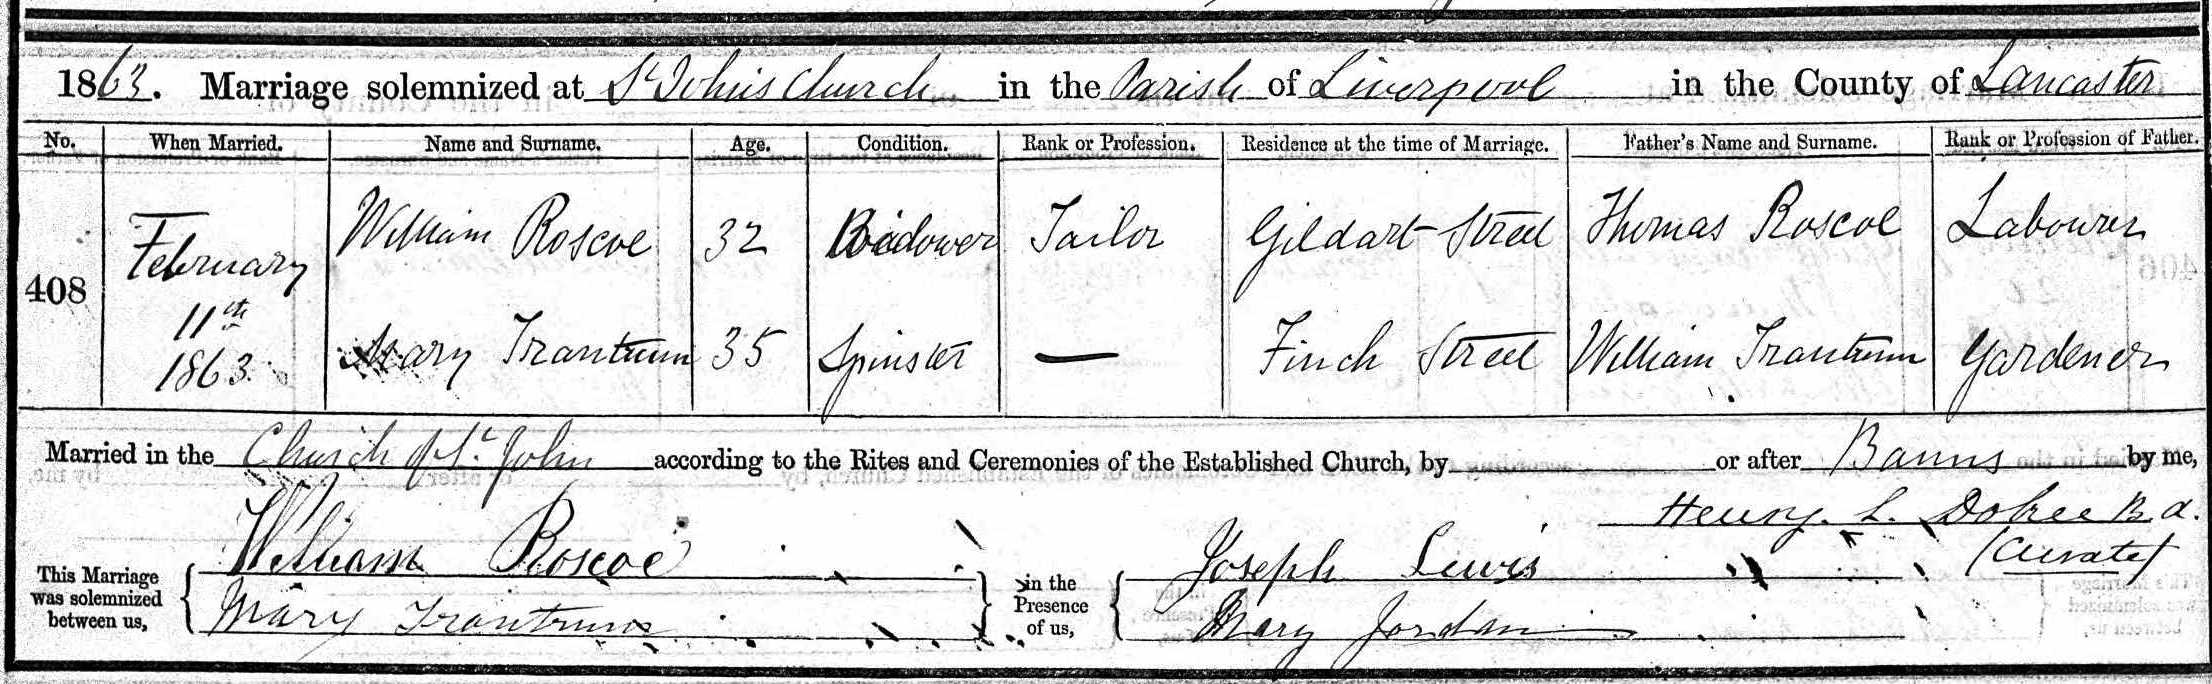 1863. Marriage solemnized at St Johns Church in the Parish of Liverpool in the County of Lancaster
No. When Married. Name and Surname. Age. Condition. Rank or Profession. Residence at the time of Marriage. Father's Name and Surname. Rank or Profession of Father.
408 February 11th 1863 William Roscoe 32 Widower Tailor Gildart Street Thomas Roscoe Labourer
Mary Trantum 35 Spinster — Finch Street William Trantum Gardener
Married in the Church of St. John according to the Rites and Ceremonies of the Established Church, by or after Banns by me,
Henry. L. Dobree B.A.
(Curate)
This Marriage was solemnized between us, { William Roscoe } in the Presence of us, { Joseph Lewis
Mary Trantrum Mary Jordan